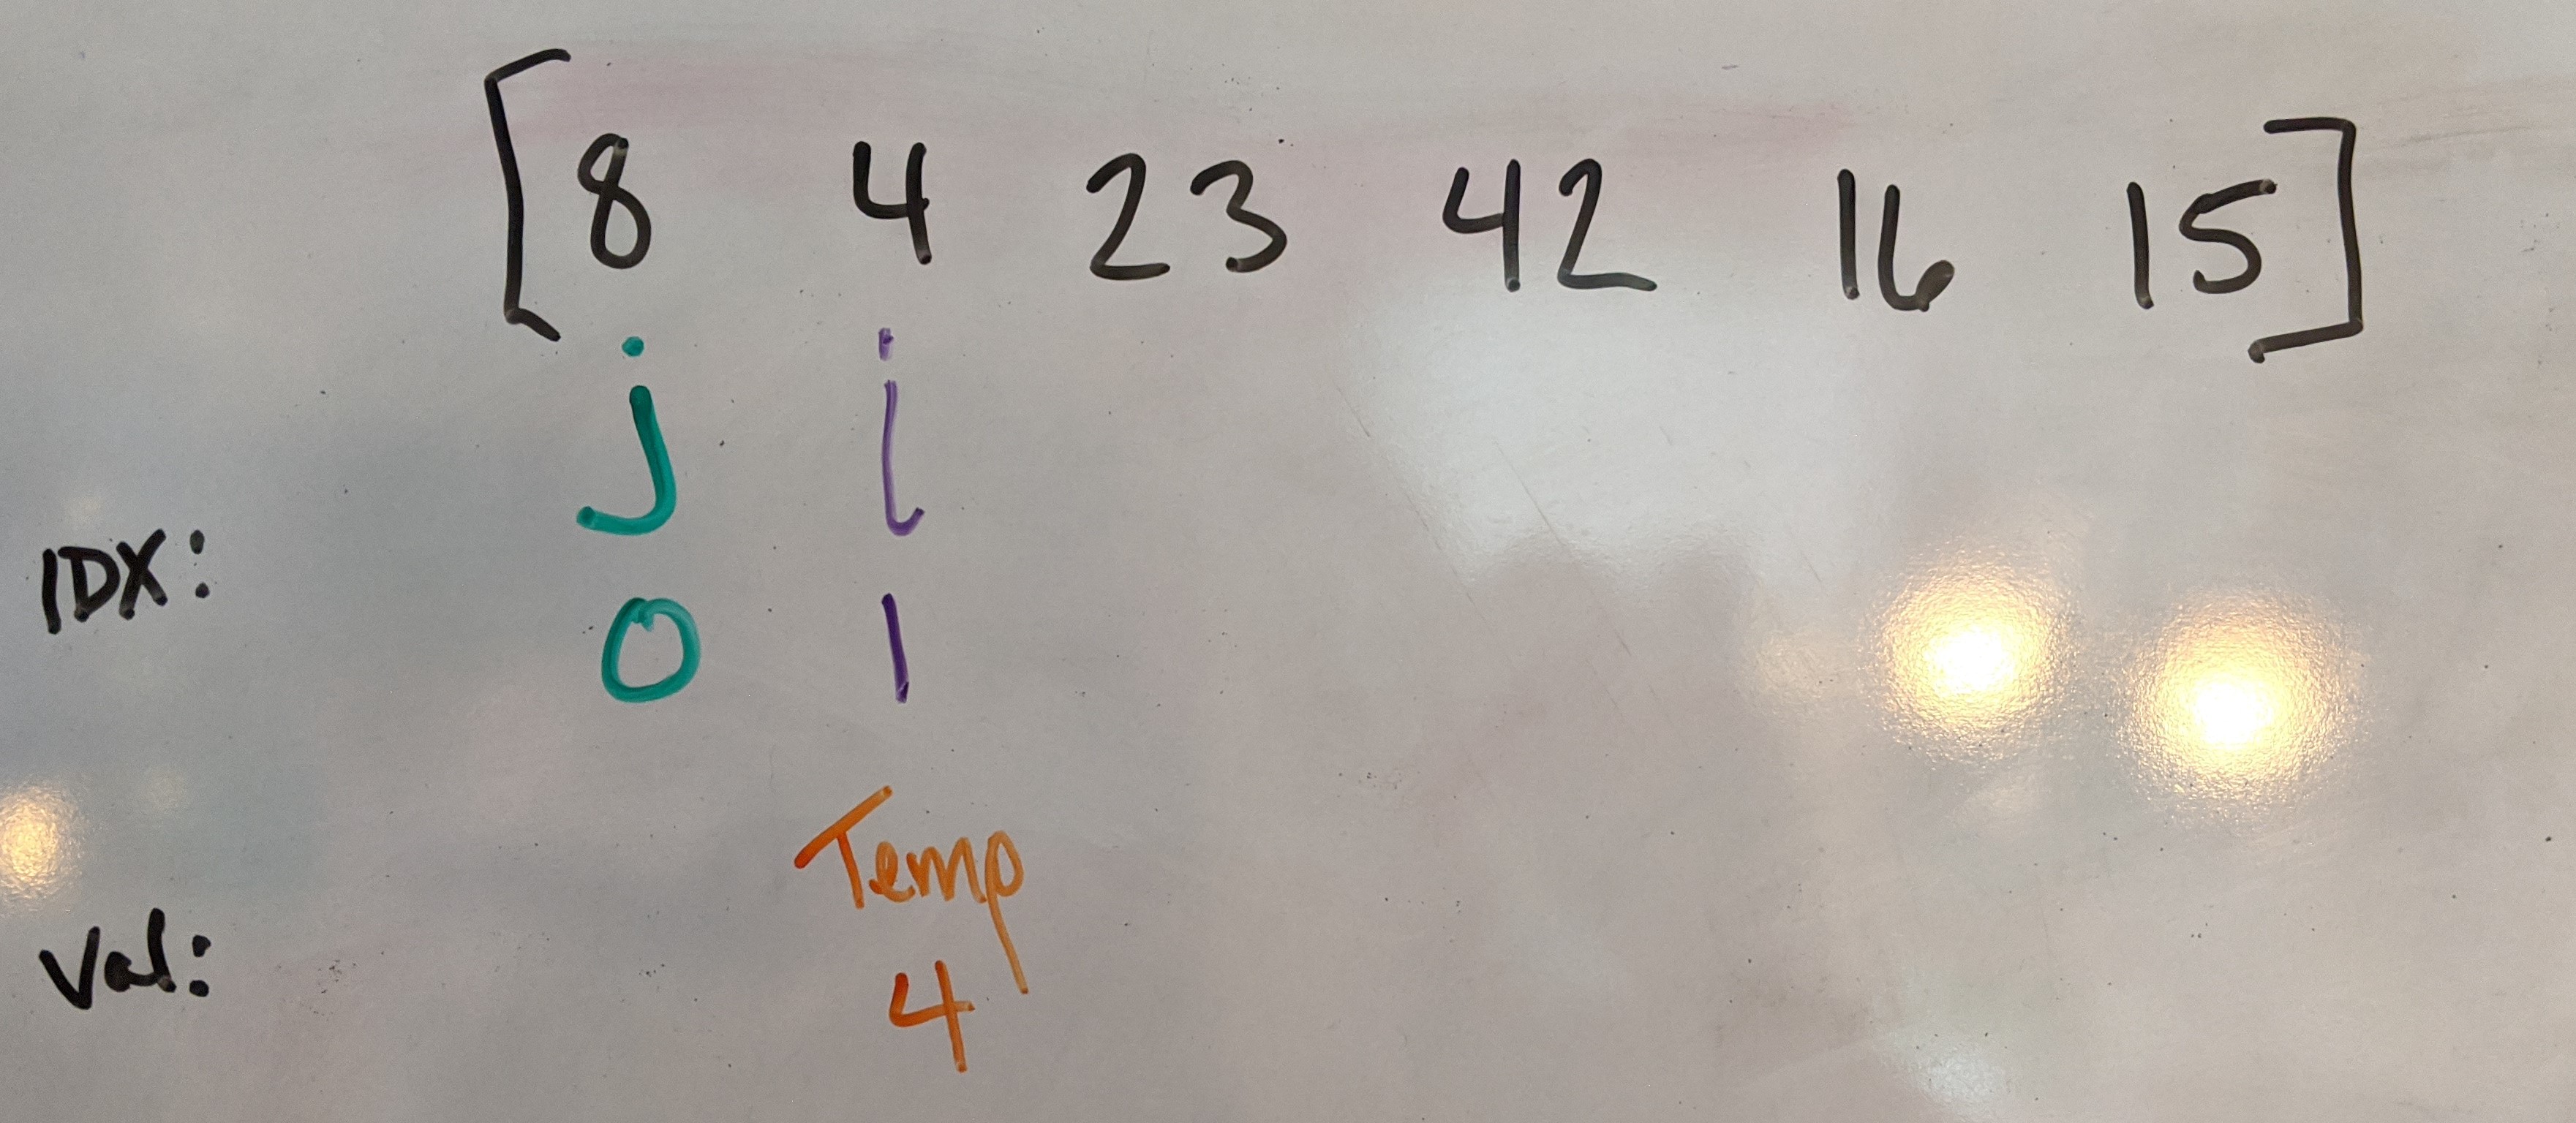 [8 4 23 42 16 15]
j i
IDX: 0 1
Temp
Val: 4